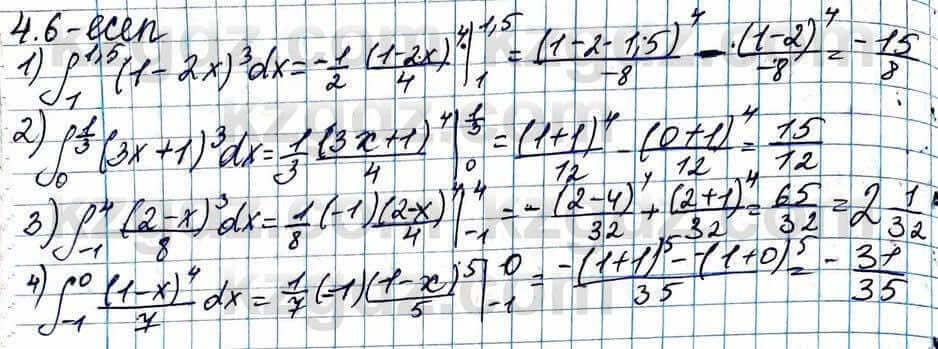 4.6-есеп
1) ∫₁^{1,5} (1-2x)³dx = -1/2 (1-2x)⁴/4 |₁^{1,5} = (1-2·1,5)⁴/-8 - (1-2)⁴/-8 = -15/8
2) ∫₀^{1/3} (3x+1)³dx = 1/3 (3x+1)⁴/4 |₀^{1/3} = (1+1)⁴/12 - (0+1)⁴/12 = 15/12
3) ∫₋₁⁴ (2-x)³/8 dx = 1/8 (-1)(2-x)⁴/4 |₋₁⁴ = -(2-4)⁴/32 + (2+1)⁴/32 = 65/32 = 2 1/32
4) ∫₋₁⁰ (1-x)⁴/7 dx = 1/7 (-1)(1-x)⁵/5 |₋₁⁰ = -(1+1)⁵-(1+0)⁵/35 = -31/35